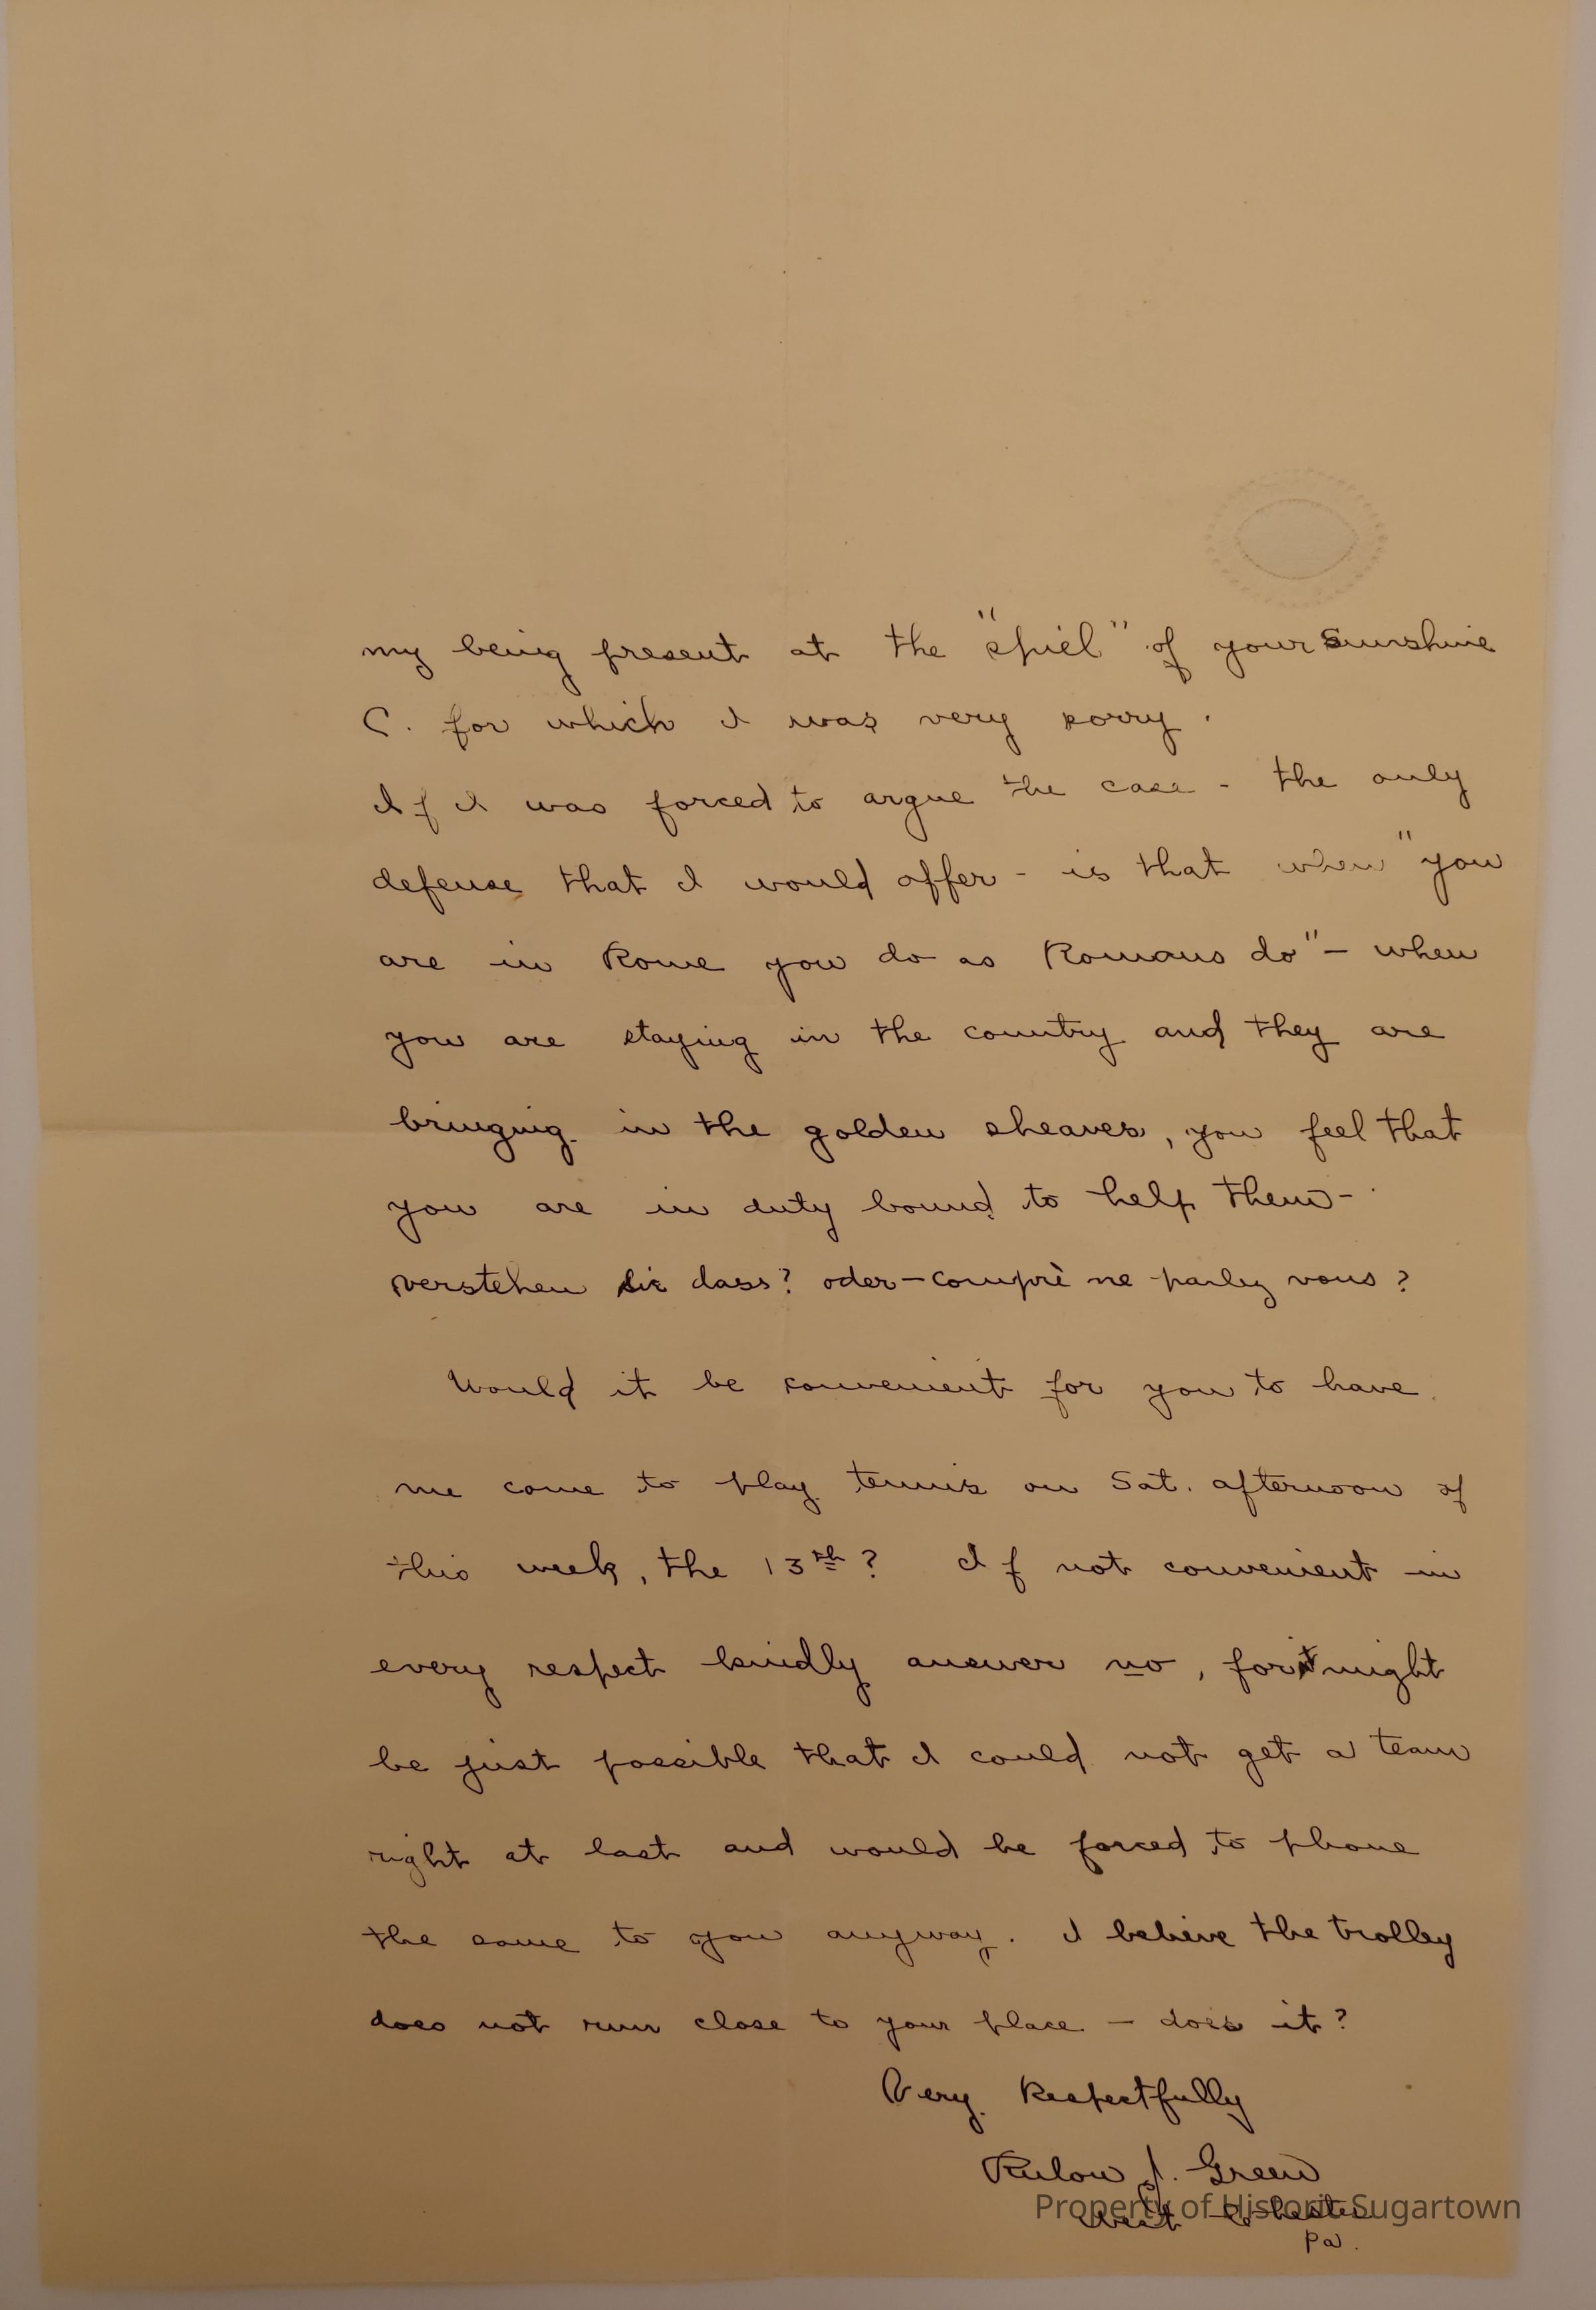 my being present at the "spiel" of your Sunshine
C. for which I was very sorry.
If I was forced to argue the case - the only
defense that I would offer - is that when "you
are in Rome you do as Romans do" - when
you are staying in the country and they are
bringing in the golden sheaves, you feel that
you are in duty bound to help them -
verstehen sie dass? oder - comprè ne parley vous?
Would it be convenient for you to have
me come to play tennis on Sat. afternoon of
this week, the 13th? If not convenient in
every respect kindly answer no, for it might
be just possible that I could not get a team
right at last and would be forced to phone
the same to you anyway. I believe the trolley
does not run close to your place - does it?
Very Respectfully
Rulon J. Green
West Chester
Pa.
Property of Historic Sugartown